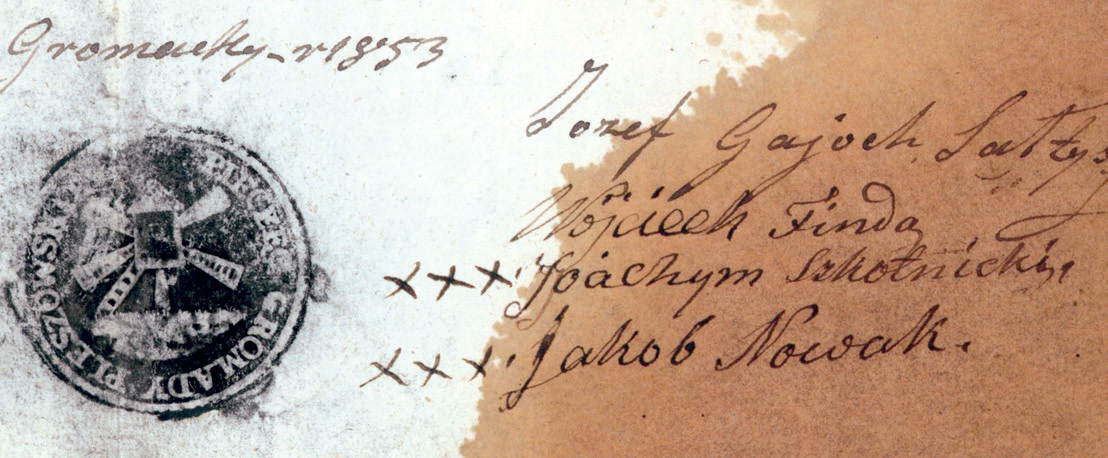 Gromadzky_r1853
Jozef Gajoch Sałtys
Wojciech Finda
x x x Joachym Szkotnicki
x x x Jakob Nowak.
PIECZĘĆ GROMADY PLESZOWSKI